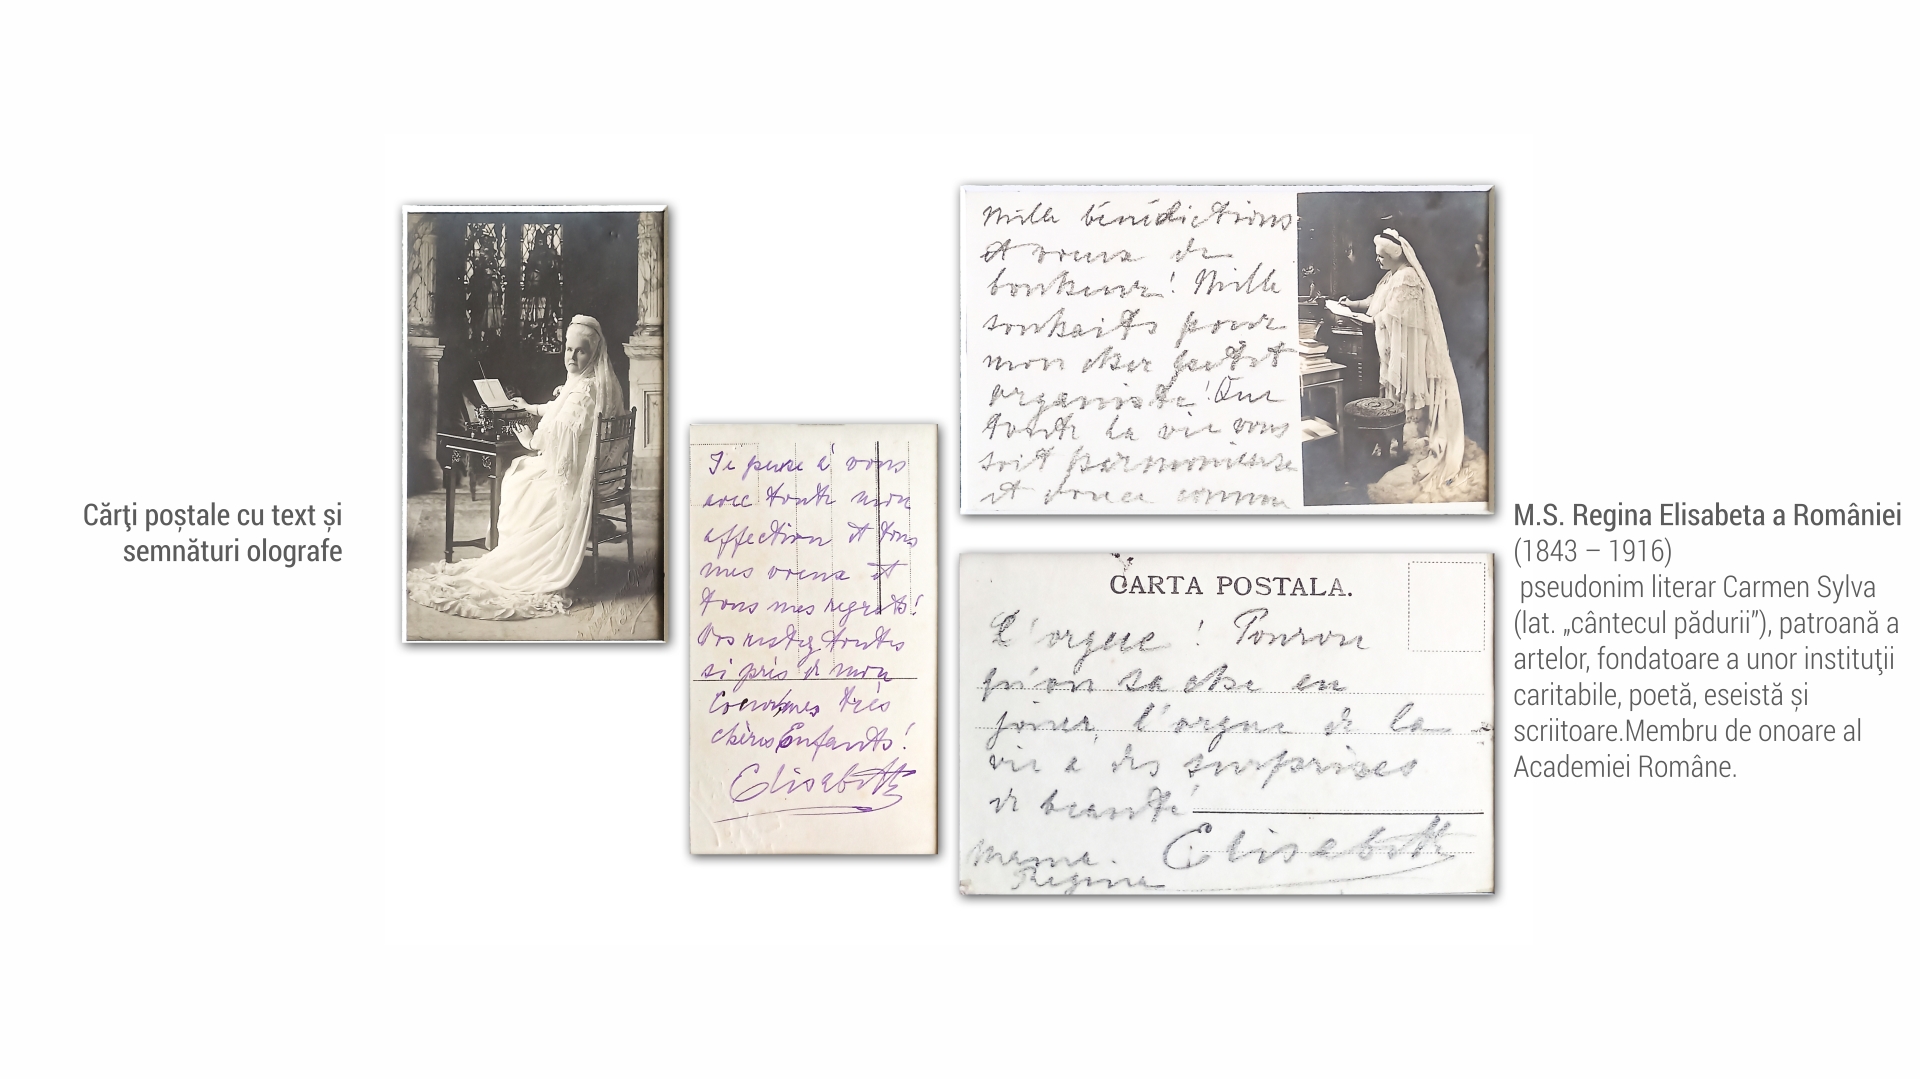 Cărţi poștale cu text și
semnături olografe
Je pense à vous
avec toute mon
affection et tous
mes voeux et
tous mes regrets!
Vos restez toutes
si près de mon
Coeur, mes très
chères Enfants!
Elisabeth
Mille bénédictions
et voeux de
bonheur! Mille
souhaits pour
mon cher petit
organiste! Que
toute la vie vous
soit harmonieuse
et douce comme
CARTA POSTALA.
L'orgue! Pourvu
qu'on sache en
jouer, l'orgue de la
vie a des surprises
de beauté
Elisabeth
Mama.
Regina
M.S. Regina Elisabeta a României
(1843 – 1916)
pseudonim literar Carmen Sylva
(lat. „cântecul pădurii”), patroană a
artelor, fondatoare a unor instituţii
caritabile, poetă, eseistă și
scriitoare.Membru de onoare al
Academiei Române.